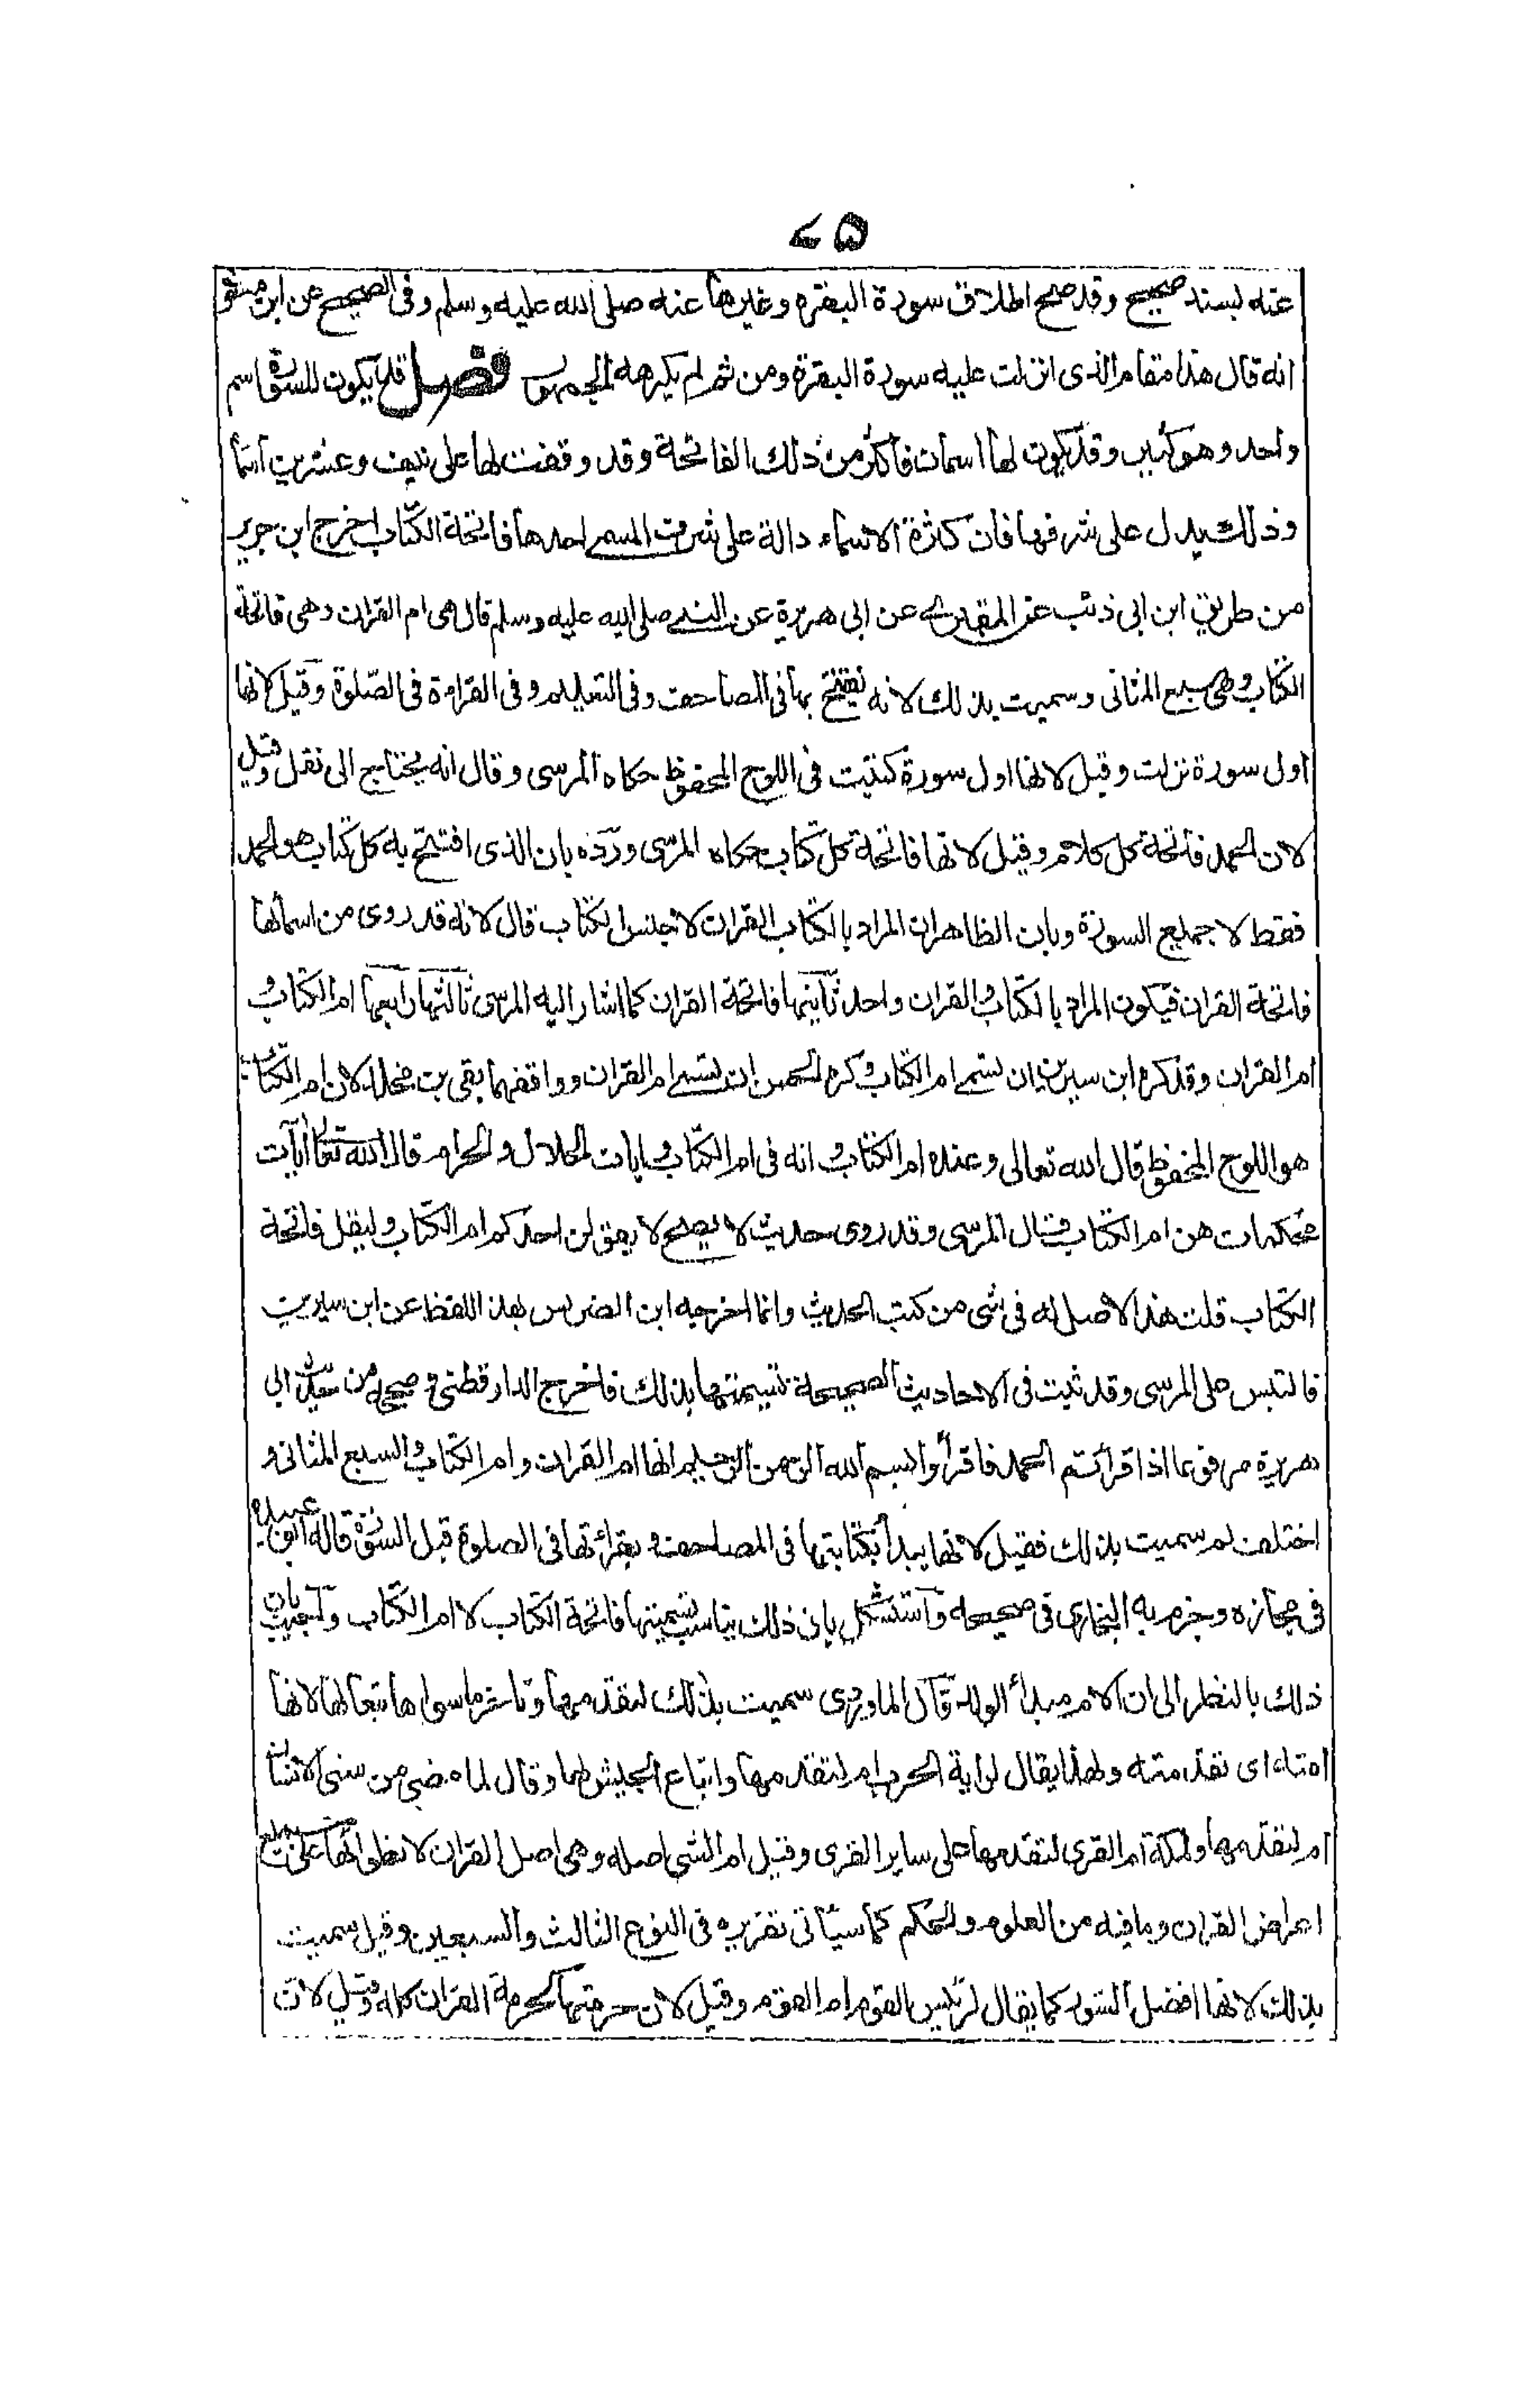 ٧٥
عنه بسند صحيح وقد صح اطلاق سورة البقره وغيرها عنه صلى الله عليه وسلم وفى الصحيح عن ابن مسعو
انه قال هذا مقام الذى انزلت عليه سورة البقرة ومن ثم لم يكرهه الجمهور فصل قد يكون للسورة اسم
واحد وهو كثير وقد يكون لها اسمان فاكثر من ذلك الفاتحة وقد وقفت لها على نيف وعشرين اسما
وذلك يدل على شرفها فان كثرة الاسماء دالة على شرف المسمى احدها فاتحة الكتاب اخرج ابن جرير
من طريق ابن ابى ذئب عن المقبرى عن ابى هريرة عن النبى صلى الله عليه وسلم قال هى ام القران وهى فاتحة
الكتاب وهى سبع المثانى وسميت بذلك لانه يفتتح بها فى المصاحف وفى التعليم وفى القراءة فى الصلوة وقيل لانها
اول سورة نزلت وقيل لانها اول سورة كتبت فى اللوح المحفوظ حكاه المرسى وقال انه يحتاج الى نقل وقيل
لان الحمد فاتحة كل كلام وقيل لانها فاتحة كل كتاب حكاه المرسى ورده بان الذى افتتح به كل كتاب هو الحمد
فقط لا جميع السورة وبان الظاهر ان المراد بالكتاب القران لا جنس الكتاب قال لانه قد روى من اسمائها
فاتحة القران فيكون المراد بالكتاب والقران واحد ثانيها فاتحة القران كما اشار اليه المرسى ثالثها رابعها ام الكتاب و
ام القران وقد كره ابن سيرين ان تسمى ام الكتاب وكره الحسن ان تسمى ام القران ووافقهما بقى بن مخلد لان ام الكتاب
هو اللوح المحفوظ قال الله تعالى وعنده ام الكتاب و انه فى ام الكتاب و ايات الحلال والحرام قال الله تعالى ايات
محكمات هن ام الكتاب قال المرسى وقد روى حديث لا يصح لا يقولن احدكم ام الكتاب وليقل فاتحة
الكتاب قلت هذا لا اصل له فى شى من كتب الحديث وانما اخرجه ابن الضريس بهذا اللفظ عن ابن سيرين
فالتبس على المرسى وقد ثبت فى الاحاديث الصحيحة تسميتها بذلك فاخرج الدار قطنى و صححه من حديث ابى
هريرة مرفوعا اذا قرأتم الحمد فاقرأوا بسم الله الرحمن الرحيم انها ام القران وام الكتاب والسبع المثانى و
اختلف لم سميت بذلك فقيل لانها يبدأ بكتابتها فى المصاحف و بقرائتها فى الصلوة قبل السورة قاله ابو عبيده
فى مجازه وجزم به البخارى فى صحيحه واستشكل بان ذلك يناسب تسميتها فاتحة الكتاب لا ام الكتاب واجيب بان
ذلك بالنظر الى ان الام مبدأ الولد قال الماوردى سميت بذلك لتقدمها وتاخر ما سواها تبعا لها لانها
امته اى تقدمته ولهذا يقال لراية الحرب ام لتقدمها واتباع الجيش لها وقال لما مضى من سنى الانسان
ام لتقدمها ولمكة ام القرى لتقدمها على ساير القرى وقيل ام الشى اصله وهى اصل القران لانطوائها على جميع
اغراض القران وما فيه من العلوم والحكم كما سيأتى تقريره فى النوع الثالث والسبعين وقيل سميت
بذلك لانها افضل السور كما يقال لرئيس القوم ام القوم وقيل لان حرمتها كحرمة القران كله وقيل لان